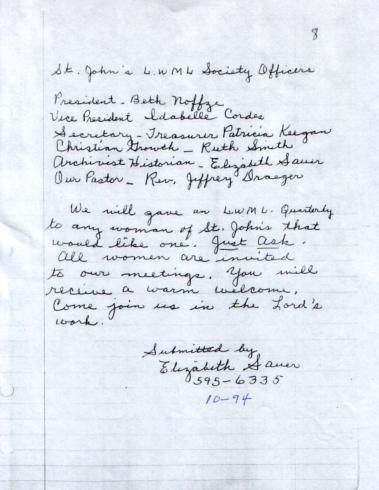 8
St. John's L.W.M.L. Society Officers
President - Beth Noffze
Vice President Idabelle Cordes
Secretary - Treasurer Patricia Keegan
Christian Growth - Ruth Smith
Archivist Historian - Elizabeth Sauer
Our Pastor - Rev. Jeffrey Draeger
We will gave an L.W.M.L. Quarterly
to any woman of St. John's that
would like one. Just Ask.
All women are invited
to our meetings. You will
receive a warm welcome.
Come join us in the Lord's
work.
Submitted by
Elizabeth Sauer
595-6335
10-94